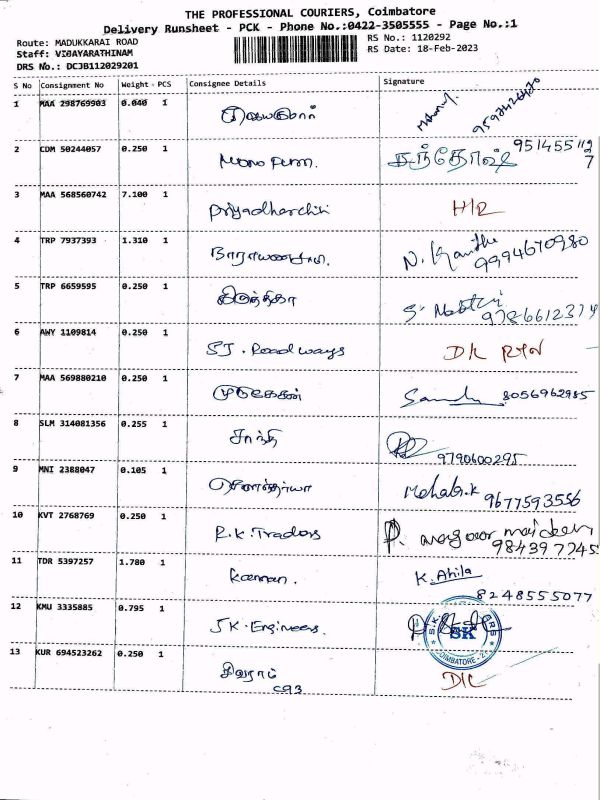 THE PROFESSIONAL COURIERS, Coimbatore
Delivery Runsheet - PCK - Phone No.:0422-3505555 - Page No.:1
Route: MADUKKARAI ROAD
Staff: VIGAYARATHINAM
DRS No.: DCJB112029201
RS No.: 1120292
RS Date: 18-Feb-2023
S No Consignment No Weight- PCS Consignee Details Signature
1 MAA 298769903 0.040 1
2 CDM 50244057 0.250 1 சந்தோஷ் 951455
3 MAA 568560742 7.100 1 Priyadharchini H/R
4 TRP 7937393 1.310 1 நாராயணசாமி 9994670980
5 TRP 6659595 0.250 1 கிருத்திகா 9786612374
6 AWY 1109814 0.250 1 SJ. Roadways
7 MAA 569880210 0.250 1 முருகேசன் 8056962985
8 SLM 314081356 0.255 1 சாந்தி 9790600295
9 MNI 2388047 0.105 1 சௌந்தர்யா 9677593556
10 KVT 2768769 0.250 1 R.K. Traders
984397745
11 TDR 5397257 1.780 1 Kannan. K. Ahila
8248555077
12 KMU 3335885 0.795 1 SK. Engineers.
SK
COIMBATORE - 21
13 KUR 694523262 0.250 1 சிவராம் D/C